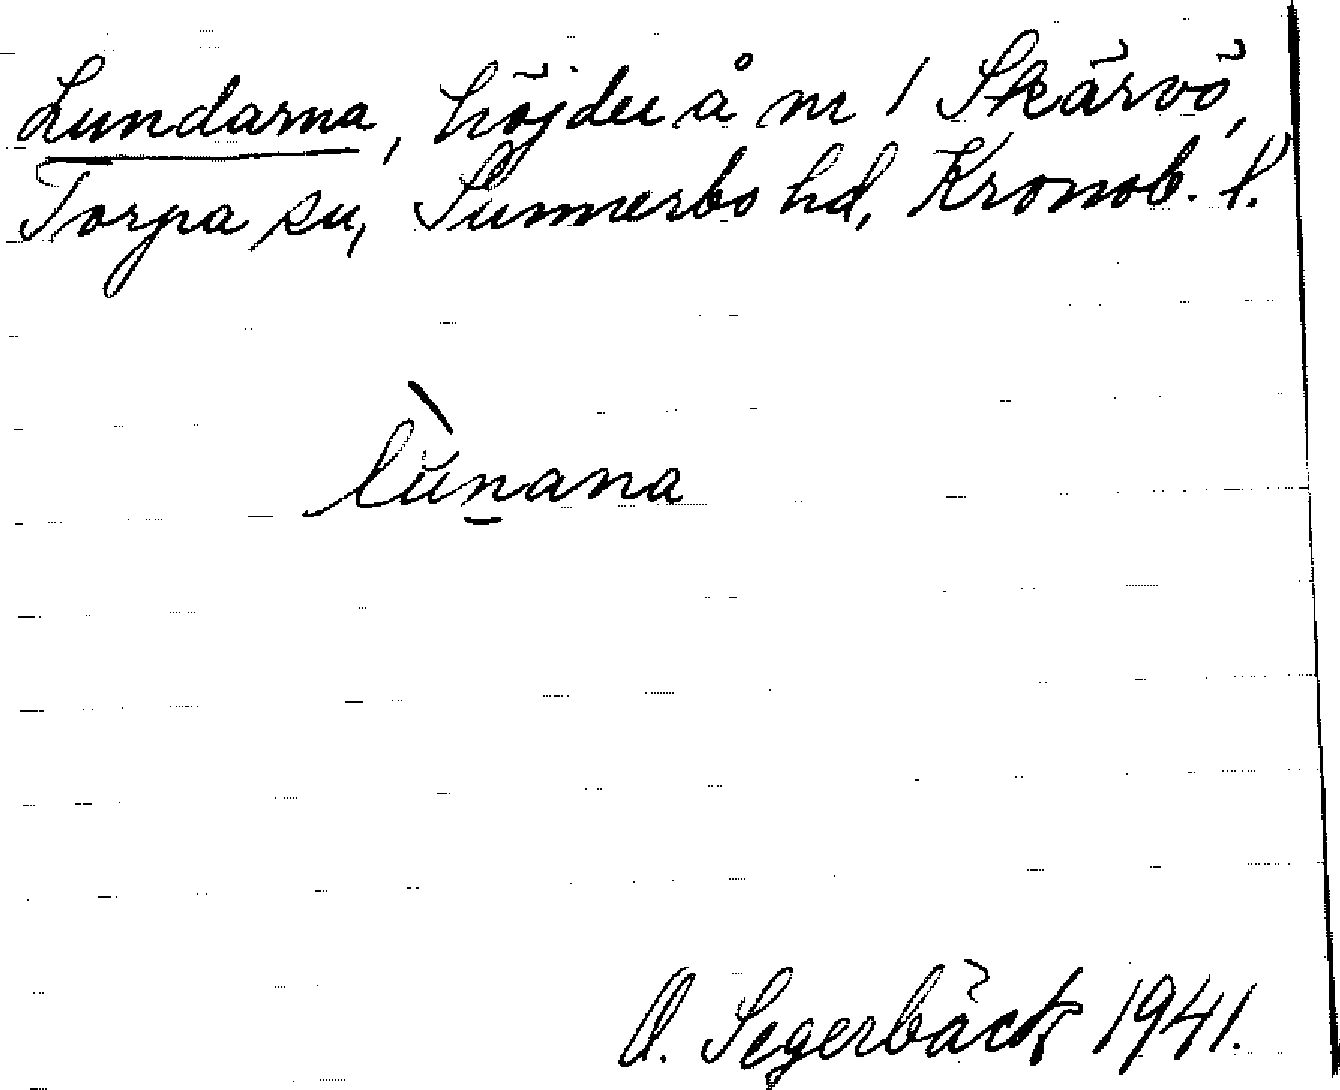 Lundarna, höjder å nr 1 Skärvö,
Torpa sn, Sunnerbo hd, Kronob. l.
lùnana
O. Segerbäck 1941.